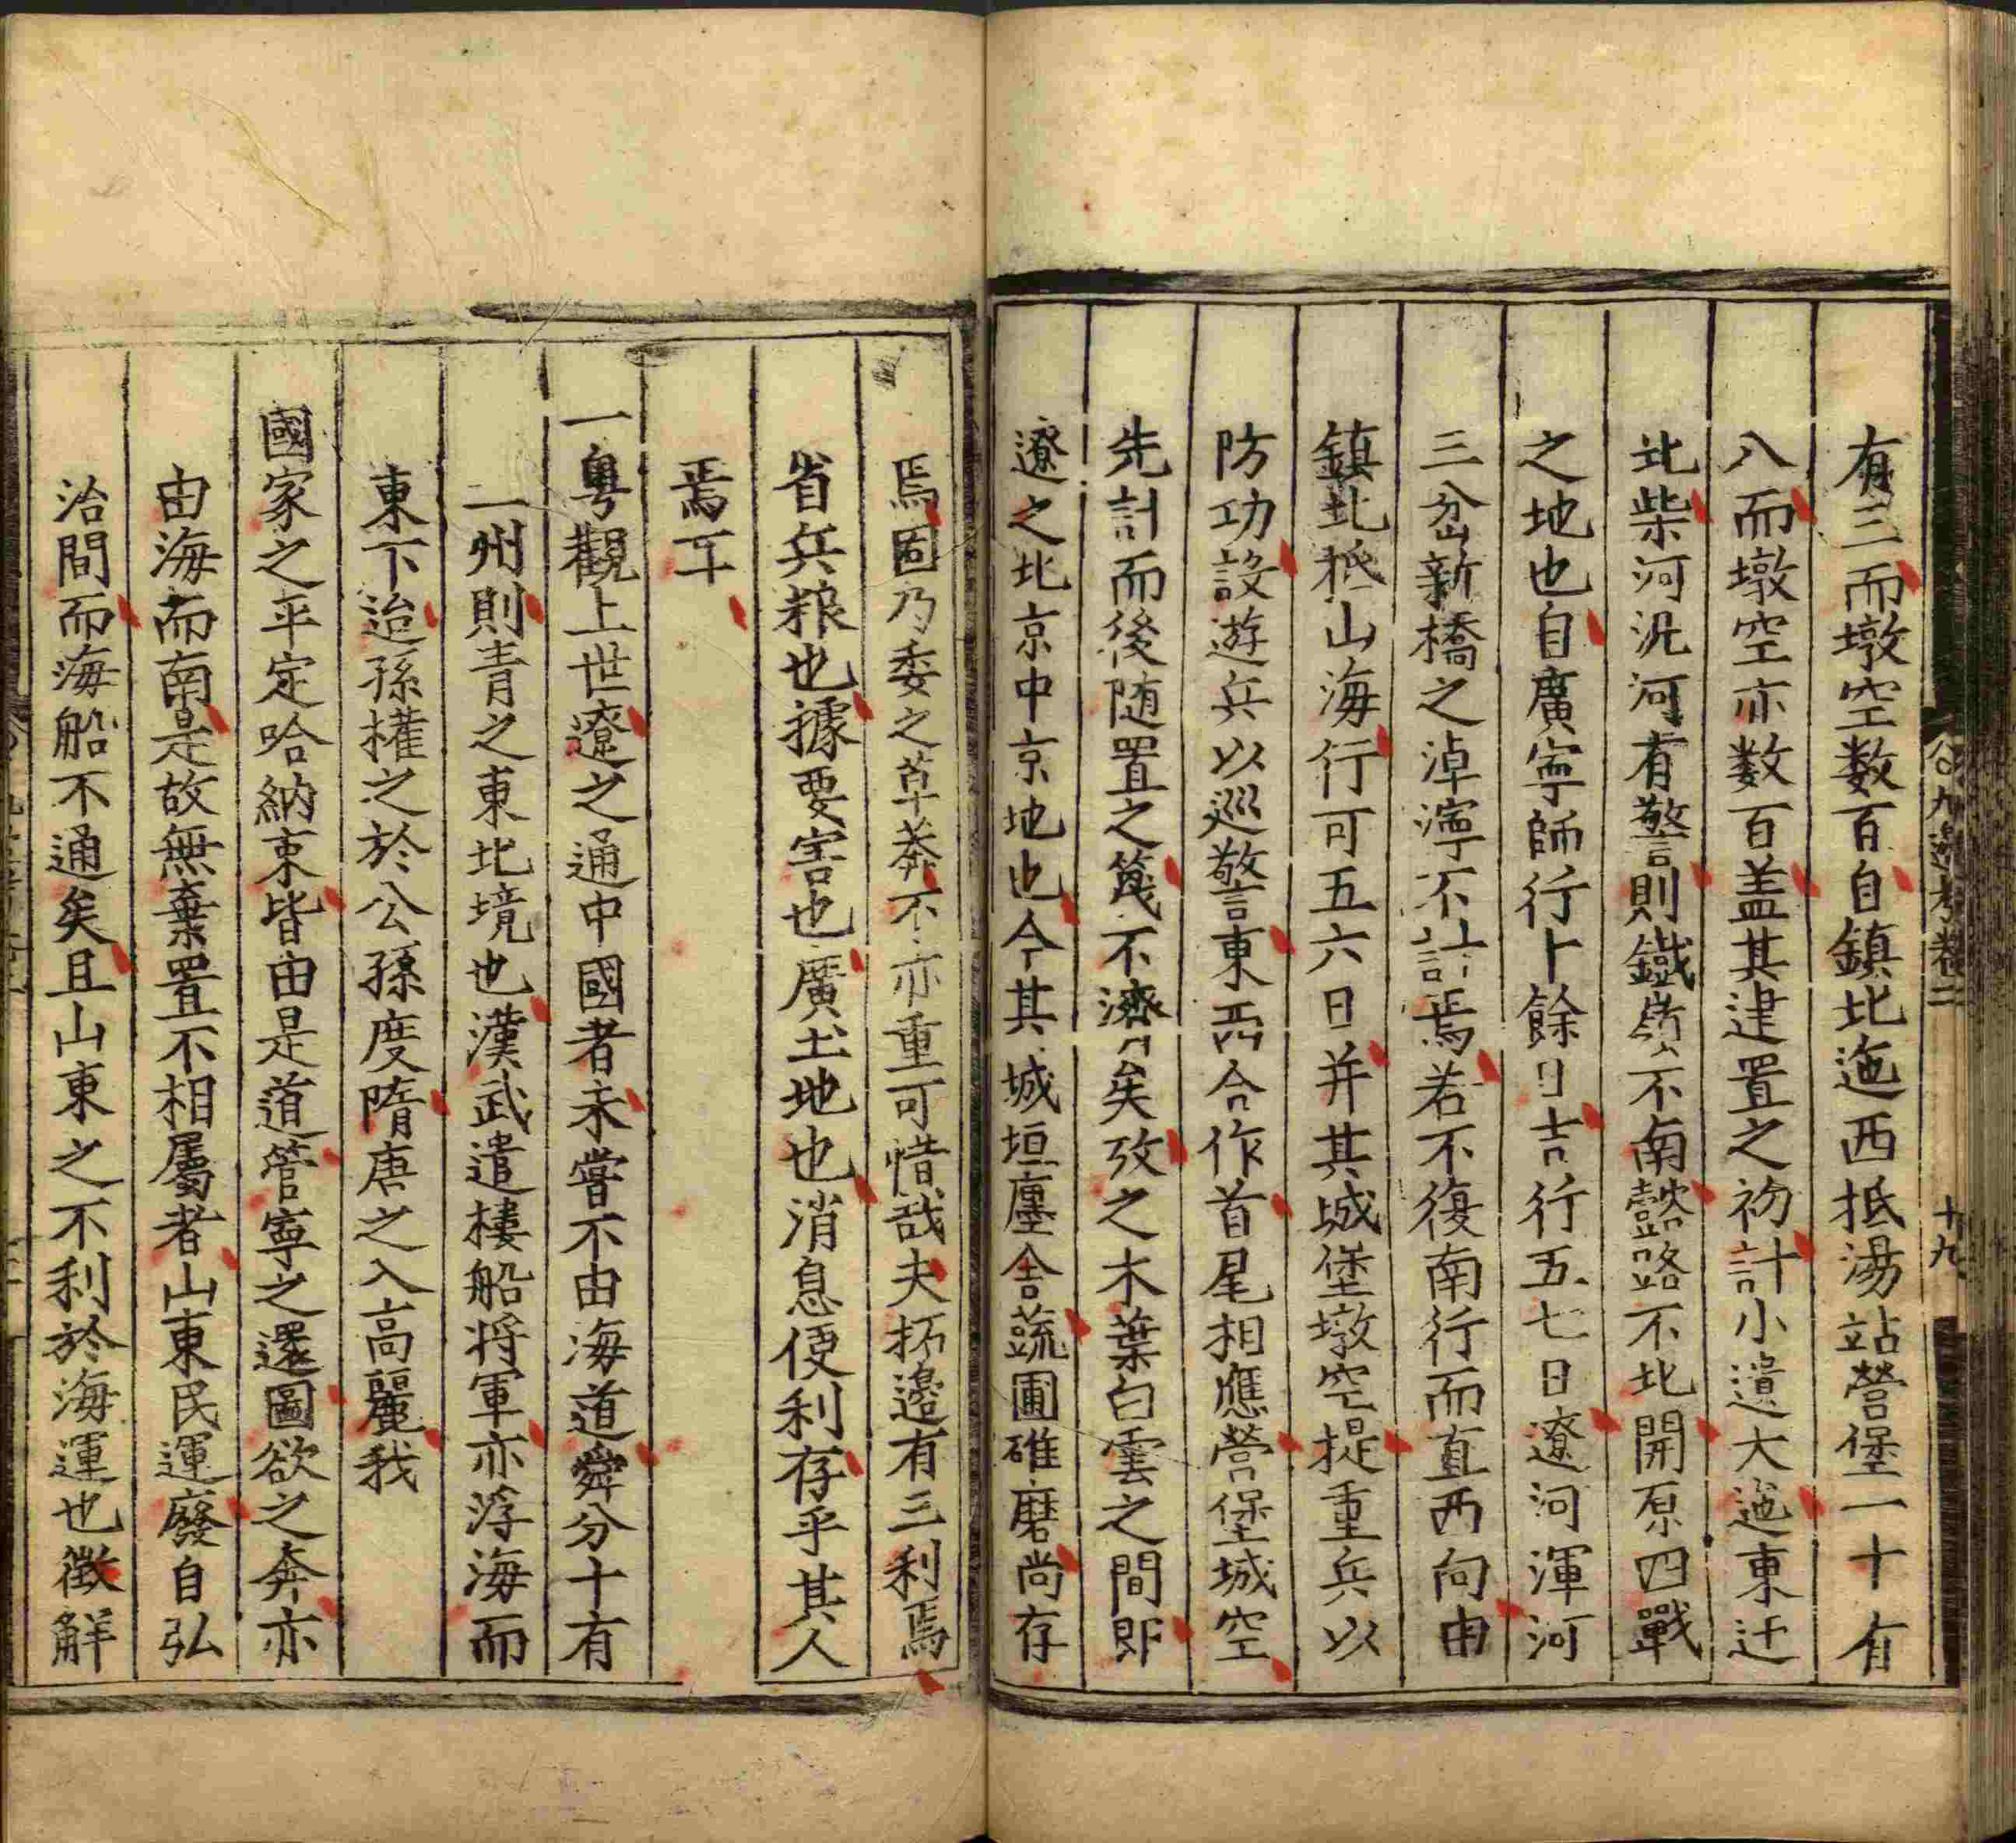 有三而墩空数百自鎮北迤西抵湯站營堡一十有
八而墩空亦数百盖其建置之初計小遺大迤東迁
北柴河汎河有警則鐵嶺不南懿路不北開原四戰
之地也自廣寧師行十餘日吉行五七日遼河渾河
三岔新橋之淖濘不計焉若不復南行而直西向由
鎮北抵山海行可五六日并其城堡墩空提重兵以
防功設遊兵以巡警東西合作首尾相應營堡城空
先計而後随置之篾不濟矣攷之木葉白雲之間即
遼之北京中京地也今其城垣廛舍蔬圃碓磨尚存
焉固乃委之草莽不亦重可惜哉夫拓邊有三利焉
省兵粮也據要害也廣土地也消息便利存乎其人
焉耳
一粤觀上世遼之通中國者未嘗不由海道舜分十有
二州則青之東北境也漢武遣樓船将軍亦浮海而
東下迨孫權之於公孫度隋唐之入高麗我
國家之平定哈納東皆由是道管寧之還圖欲之奔亦
由海而南是故無棄置不相屬者山東民運廢自弘
治間而海船不通矣且山東之不利於海運也徵解
公九邊考卷二
十九